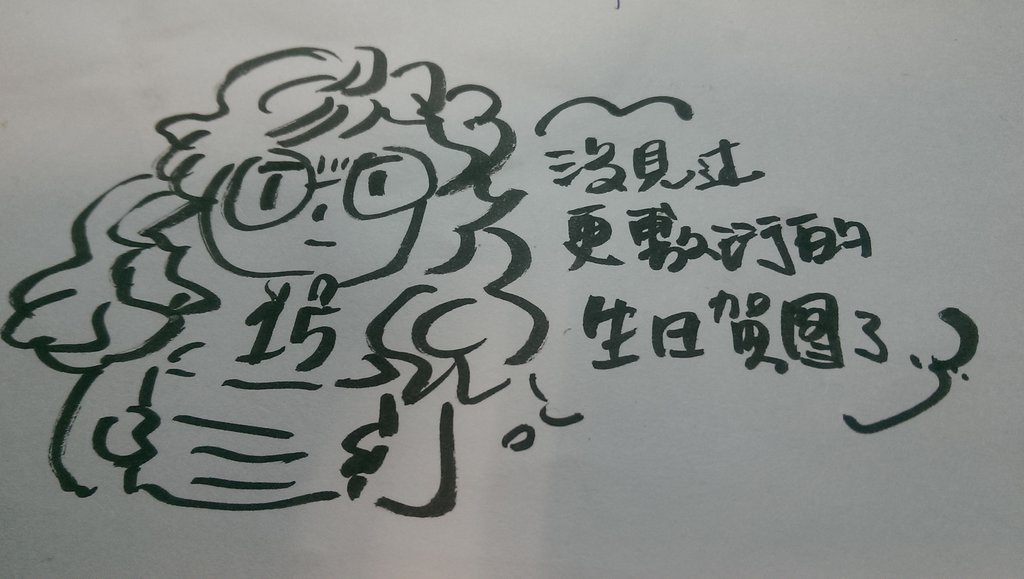 15
沒見过
更敷衍的
生日賀图了